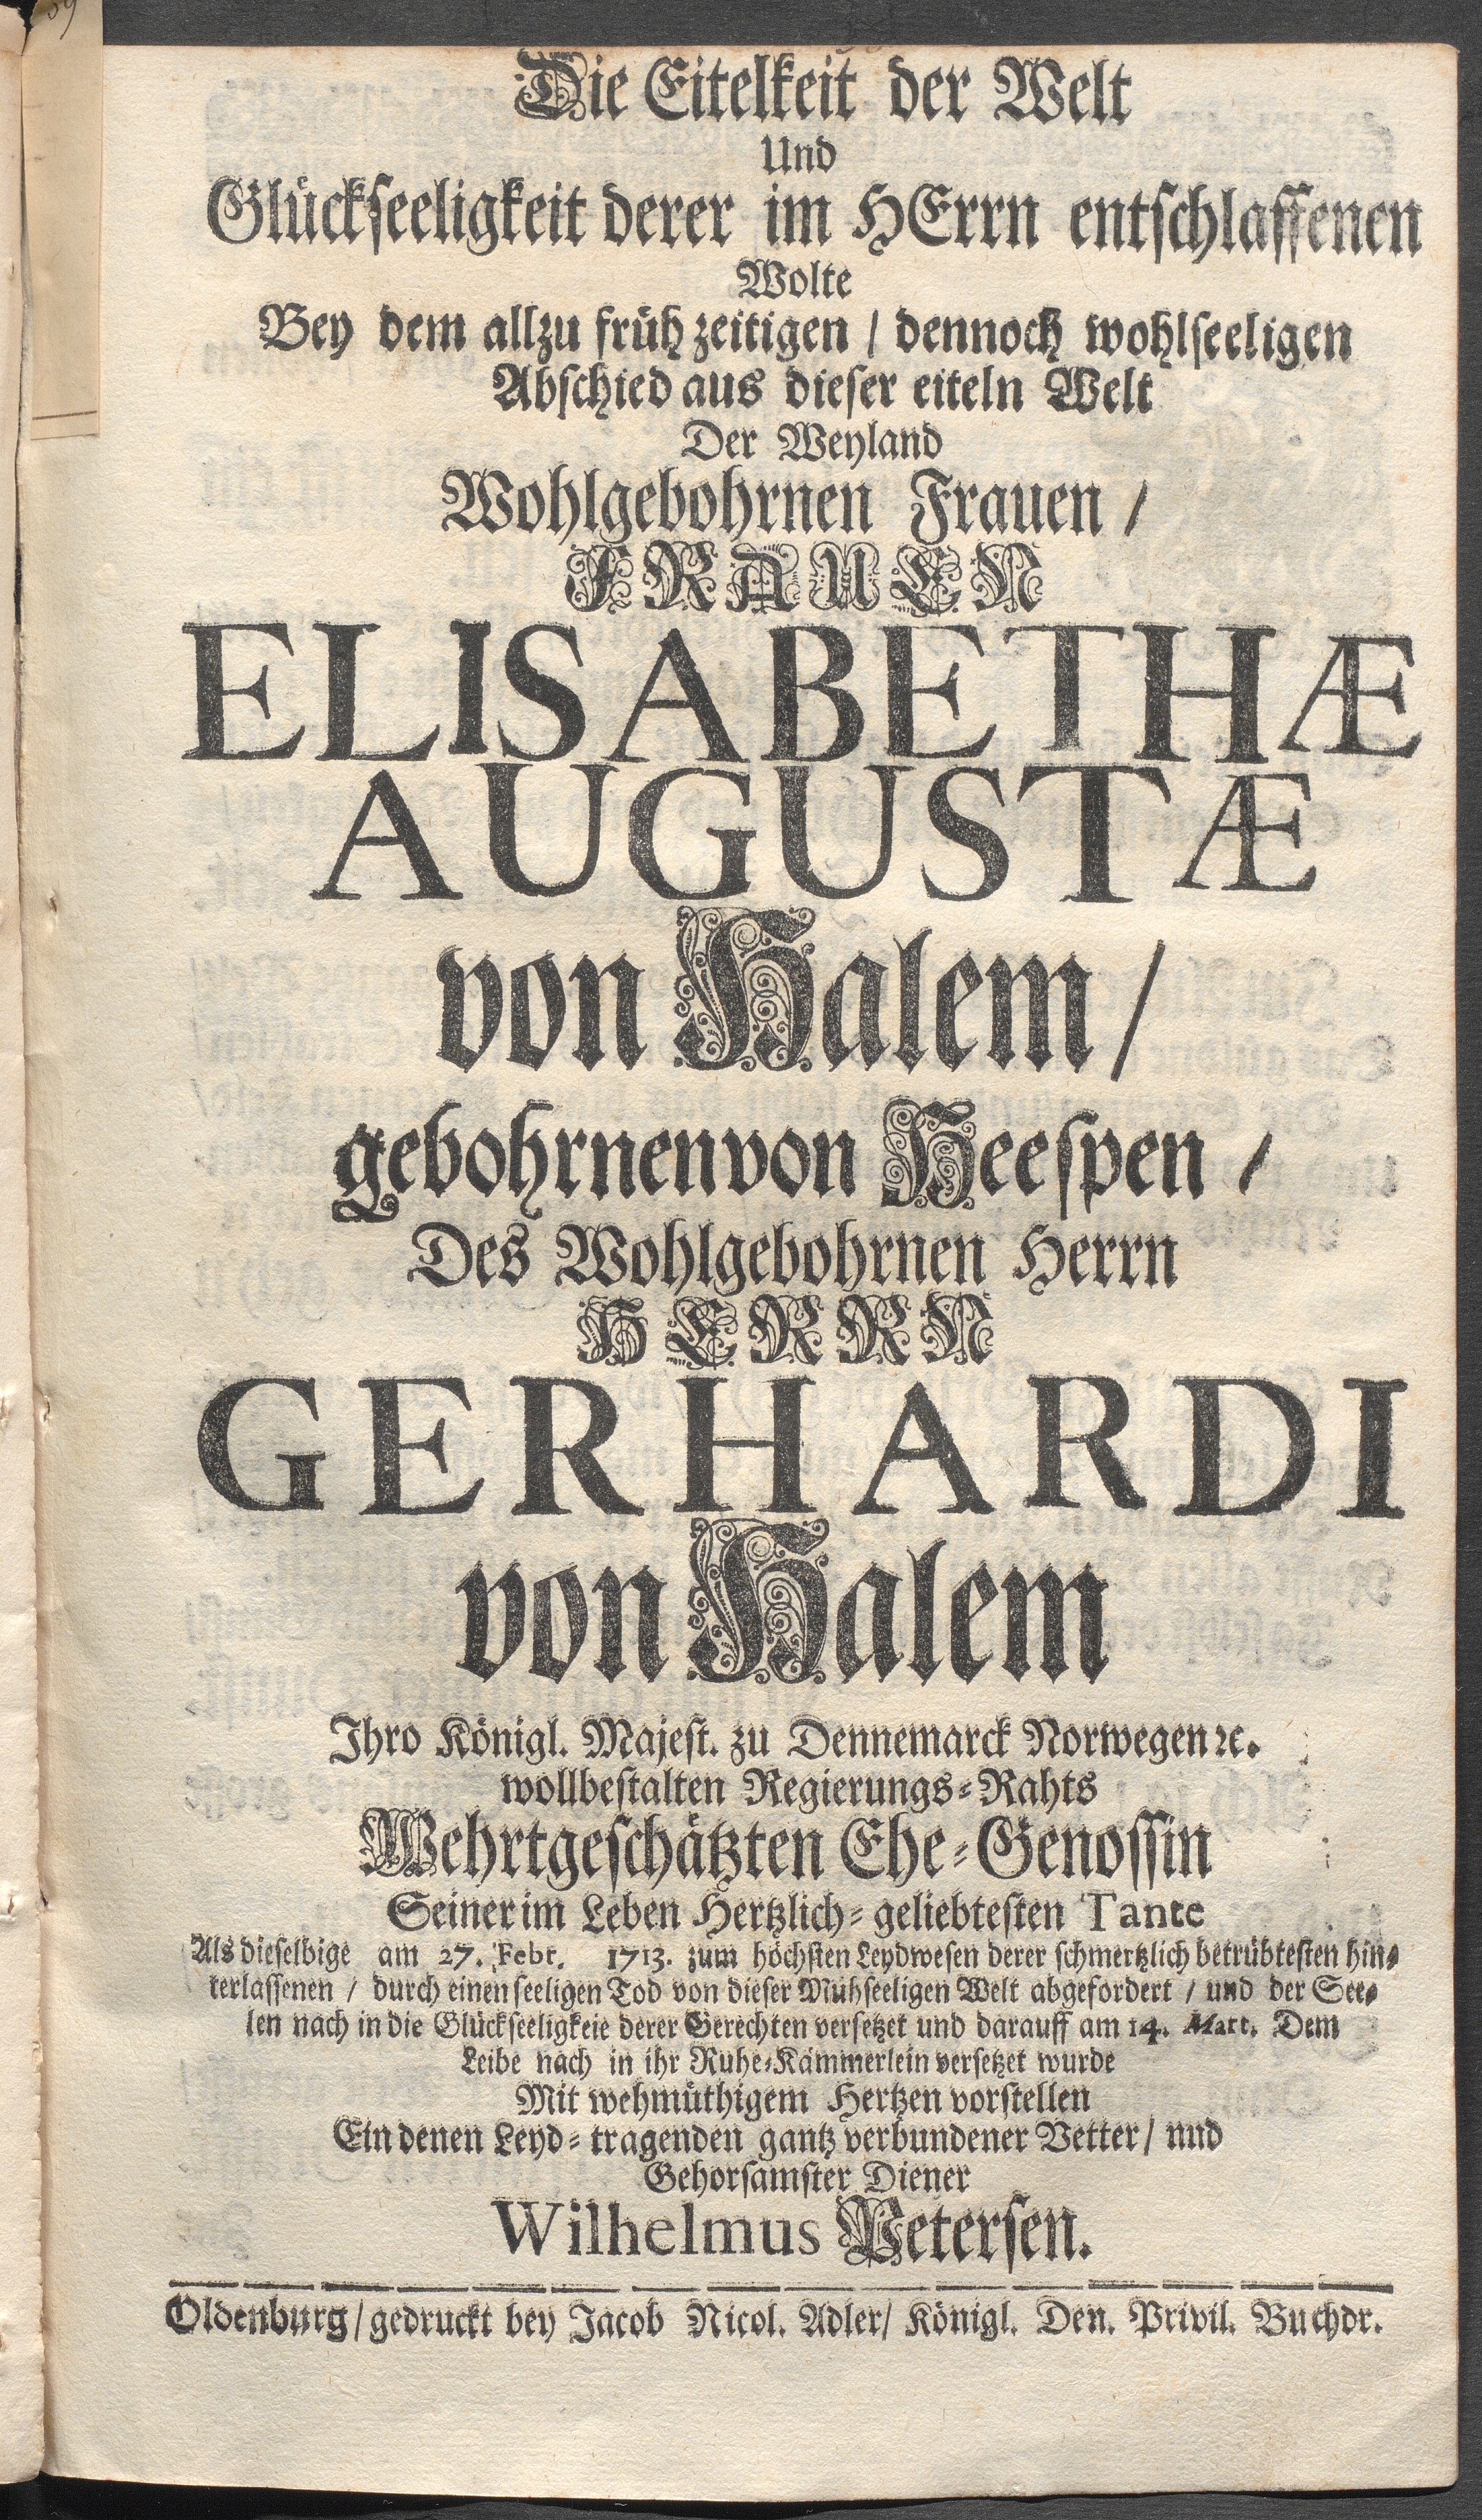 Die Eitelkeit der Welt
Und
Glückseeligkeit derer im HErrn entschlaffenen
Wolte
Bey dem allzu früh zeitigen / dennoch wohlseeligen
Abschied aus dieser eiteln Welt
Der Weyland
Wohlgebohrnen Frauen /
FRAUEN
ELISABETHÆ
AUGUSTÆ
von Halem /
gebohrnen von Heespen /
Des Wohlgebohrnen Herrn
HERRN
GERHARDI
von Halem
Ihro Königl. Majest. zu Dennemarck Norwegen ꝛc.
wollbestalten Regierungs-Rahts
Wehrtgeschätzten Ehe-Genossin
Seiner im Leben Hertzlich-geliebtesten Tante
Als dieselbige am 27. Febr. 1713. zum höchsten Leydwesen derer schmertzlich betrübtesten hin-
terlassenen / durch einen seeligen Tod von dieser Mühseeligen Welt abgefordert / und der See-
len nach in die Glückseeligkeie derer Gerechten versetzet und darauff am 14. Mart. Dem
Leibe nach in ihr Ruhe-Kämmerlein versetzet wurde
Mit wehmüthigem Hertzen vorstellen
Ein denen Leyd-tragenden gantz verbundener Vetter / nnd
Gehorsamster Diener
Wilhelmus Petersen.
Oldenburg / gedruckt bey Jacob Nicol. Adler / Königl. Den. Privil. Buchdr.